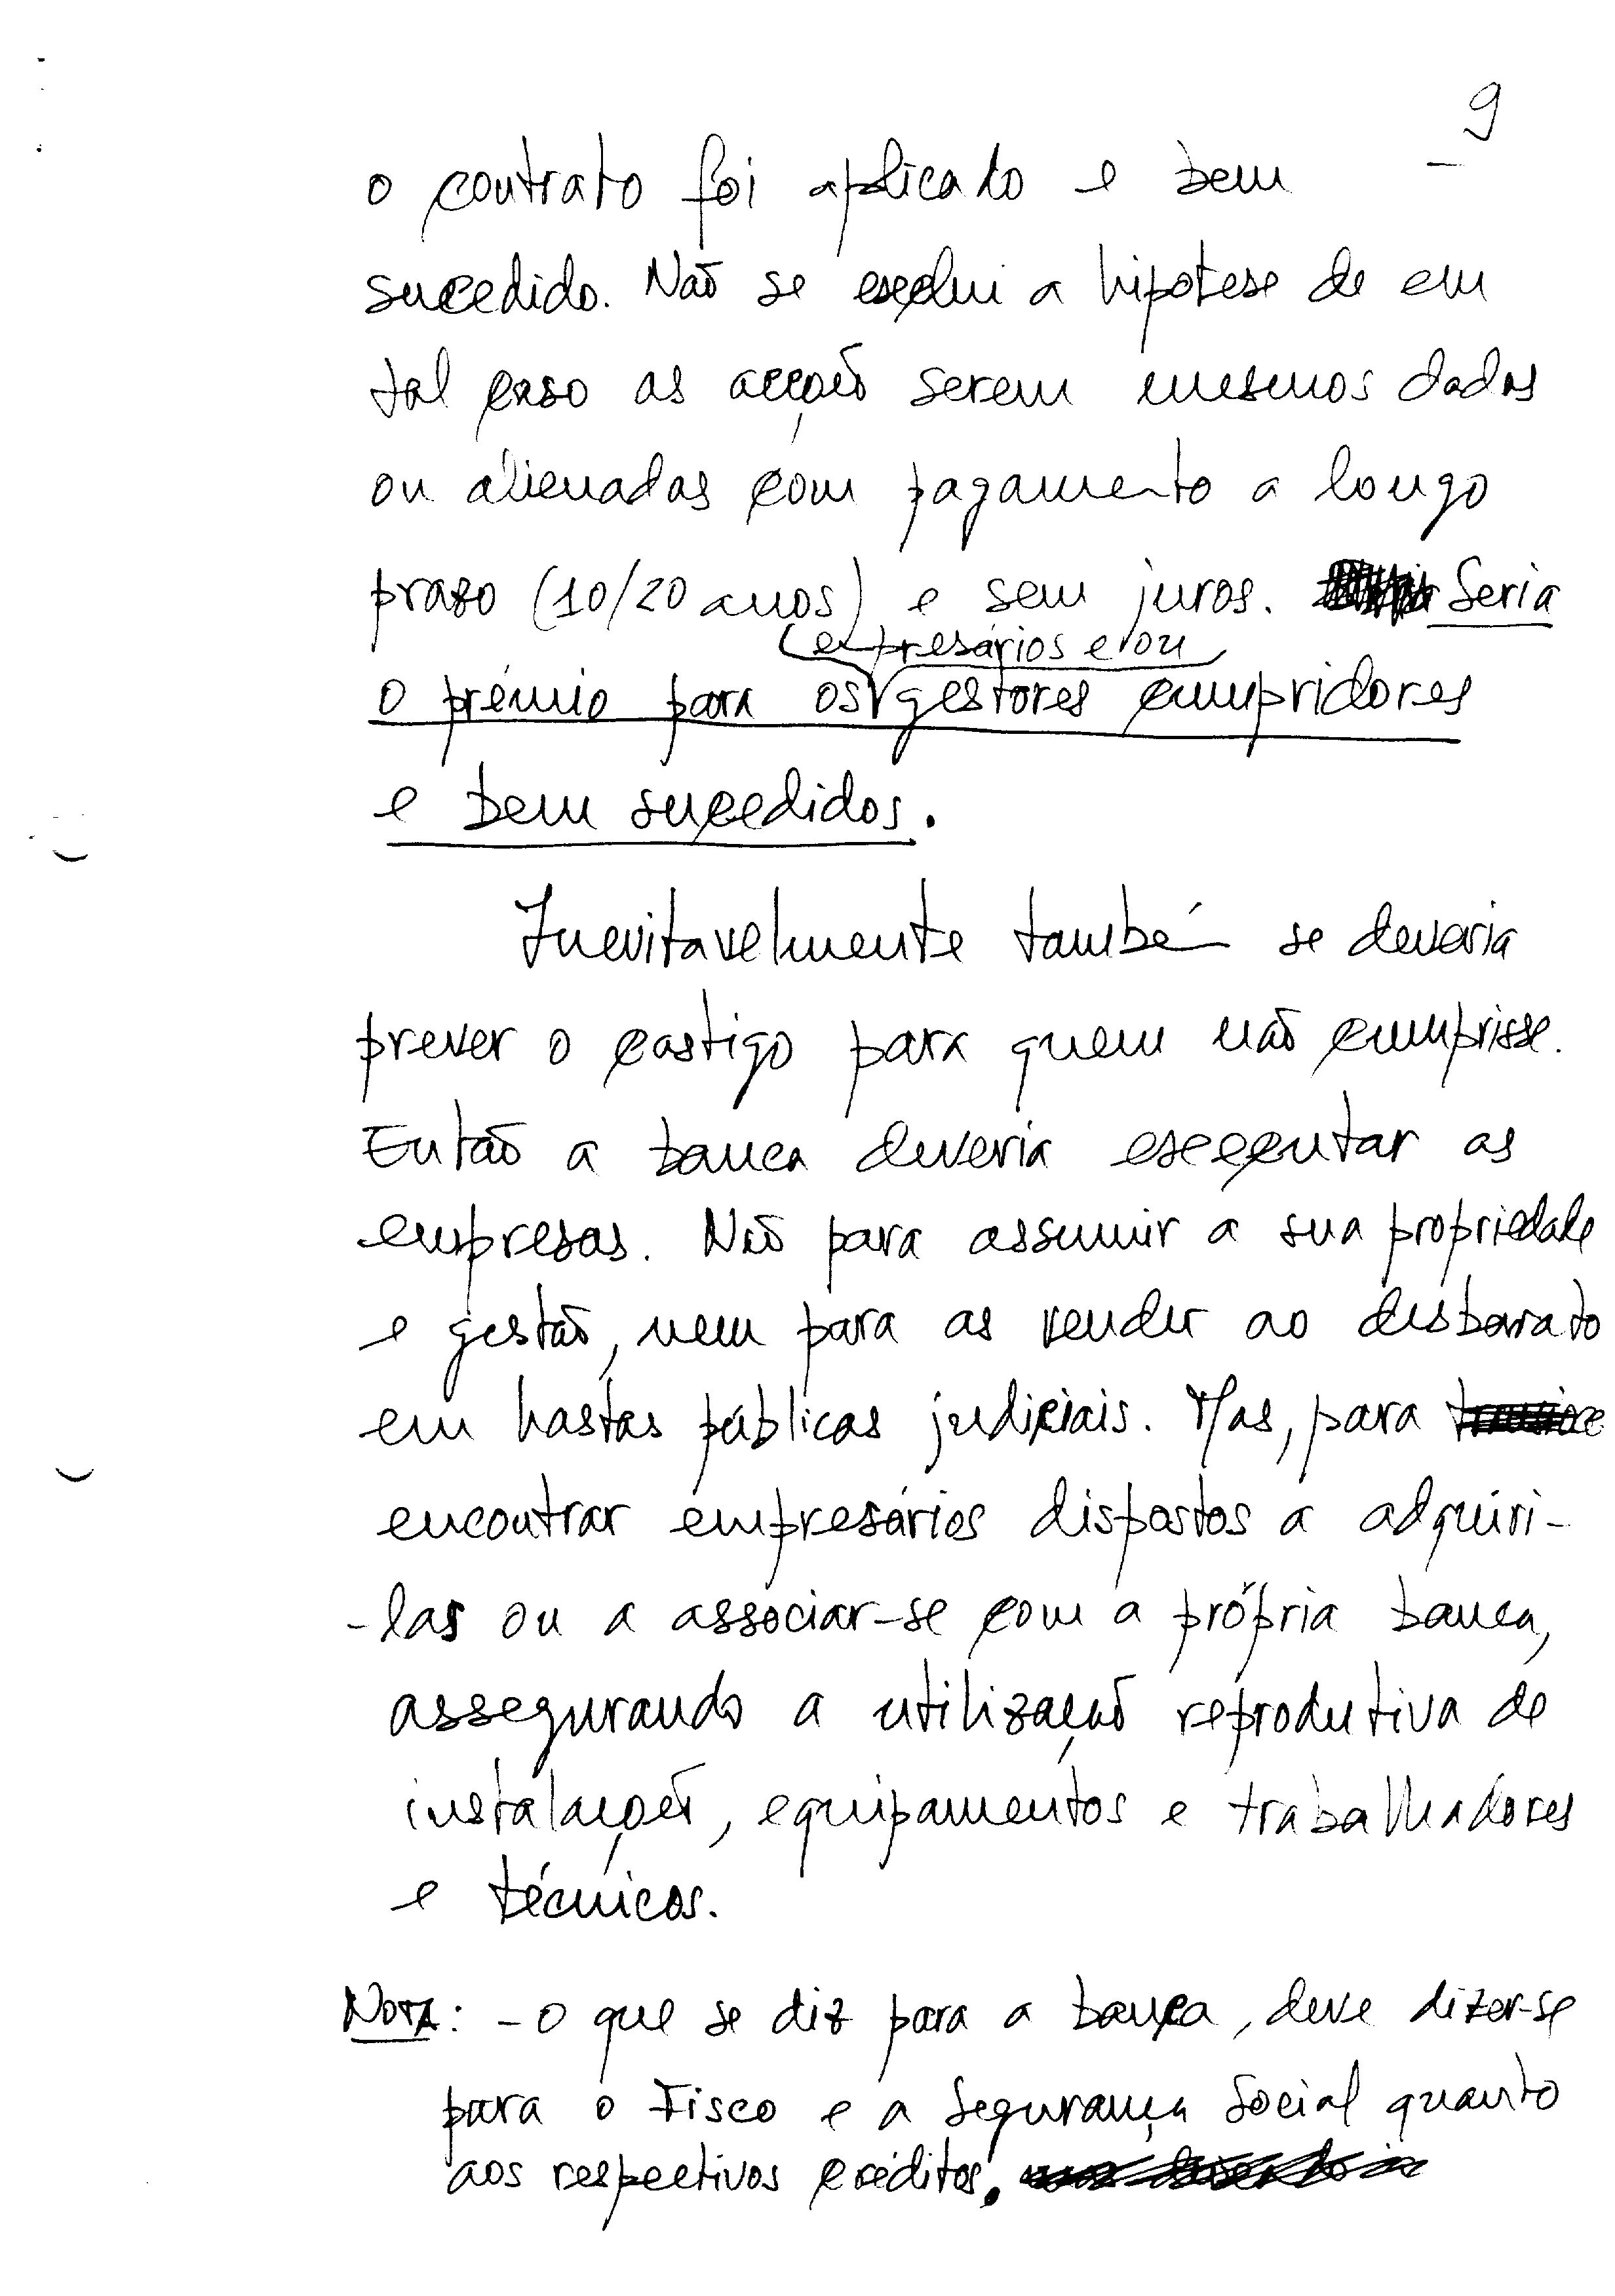 9
o contrato foi aplicado e bem
sucedido. Não se exclui a hipótese de em
tal caso as acções serem mesmos dadas
ou alienadas com pagamento a longo
prazo (10/20 anos) e sem juros. Seria
(empresários e/ou
o prémio para os gestores cumpridores
e bem sucedidos.
Inevitavelmente também se deveria
prever o castigo para quem não cumprisse.
Então a banca deveria executar as
empresas. Não para assumir a sua propriedade
e gestão, nem para as vender ao desbarato
em hastas públicas judiciais. Mas, para
encontrar empresários dispostos a adquiri-
-las ou a associar-se com a própria banca,
assegurando a utilização reprodutiva de
instalações, equipamentos e trabalhadores
e técnicos.
Nota: - O que se diz para a banca, deve dizer-se
para o Fisco e a Segurança Social quanto
aos respectivos créditos.